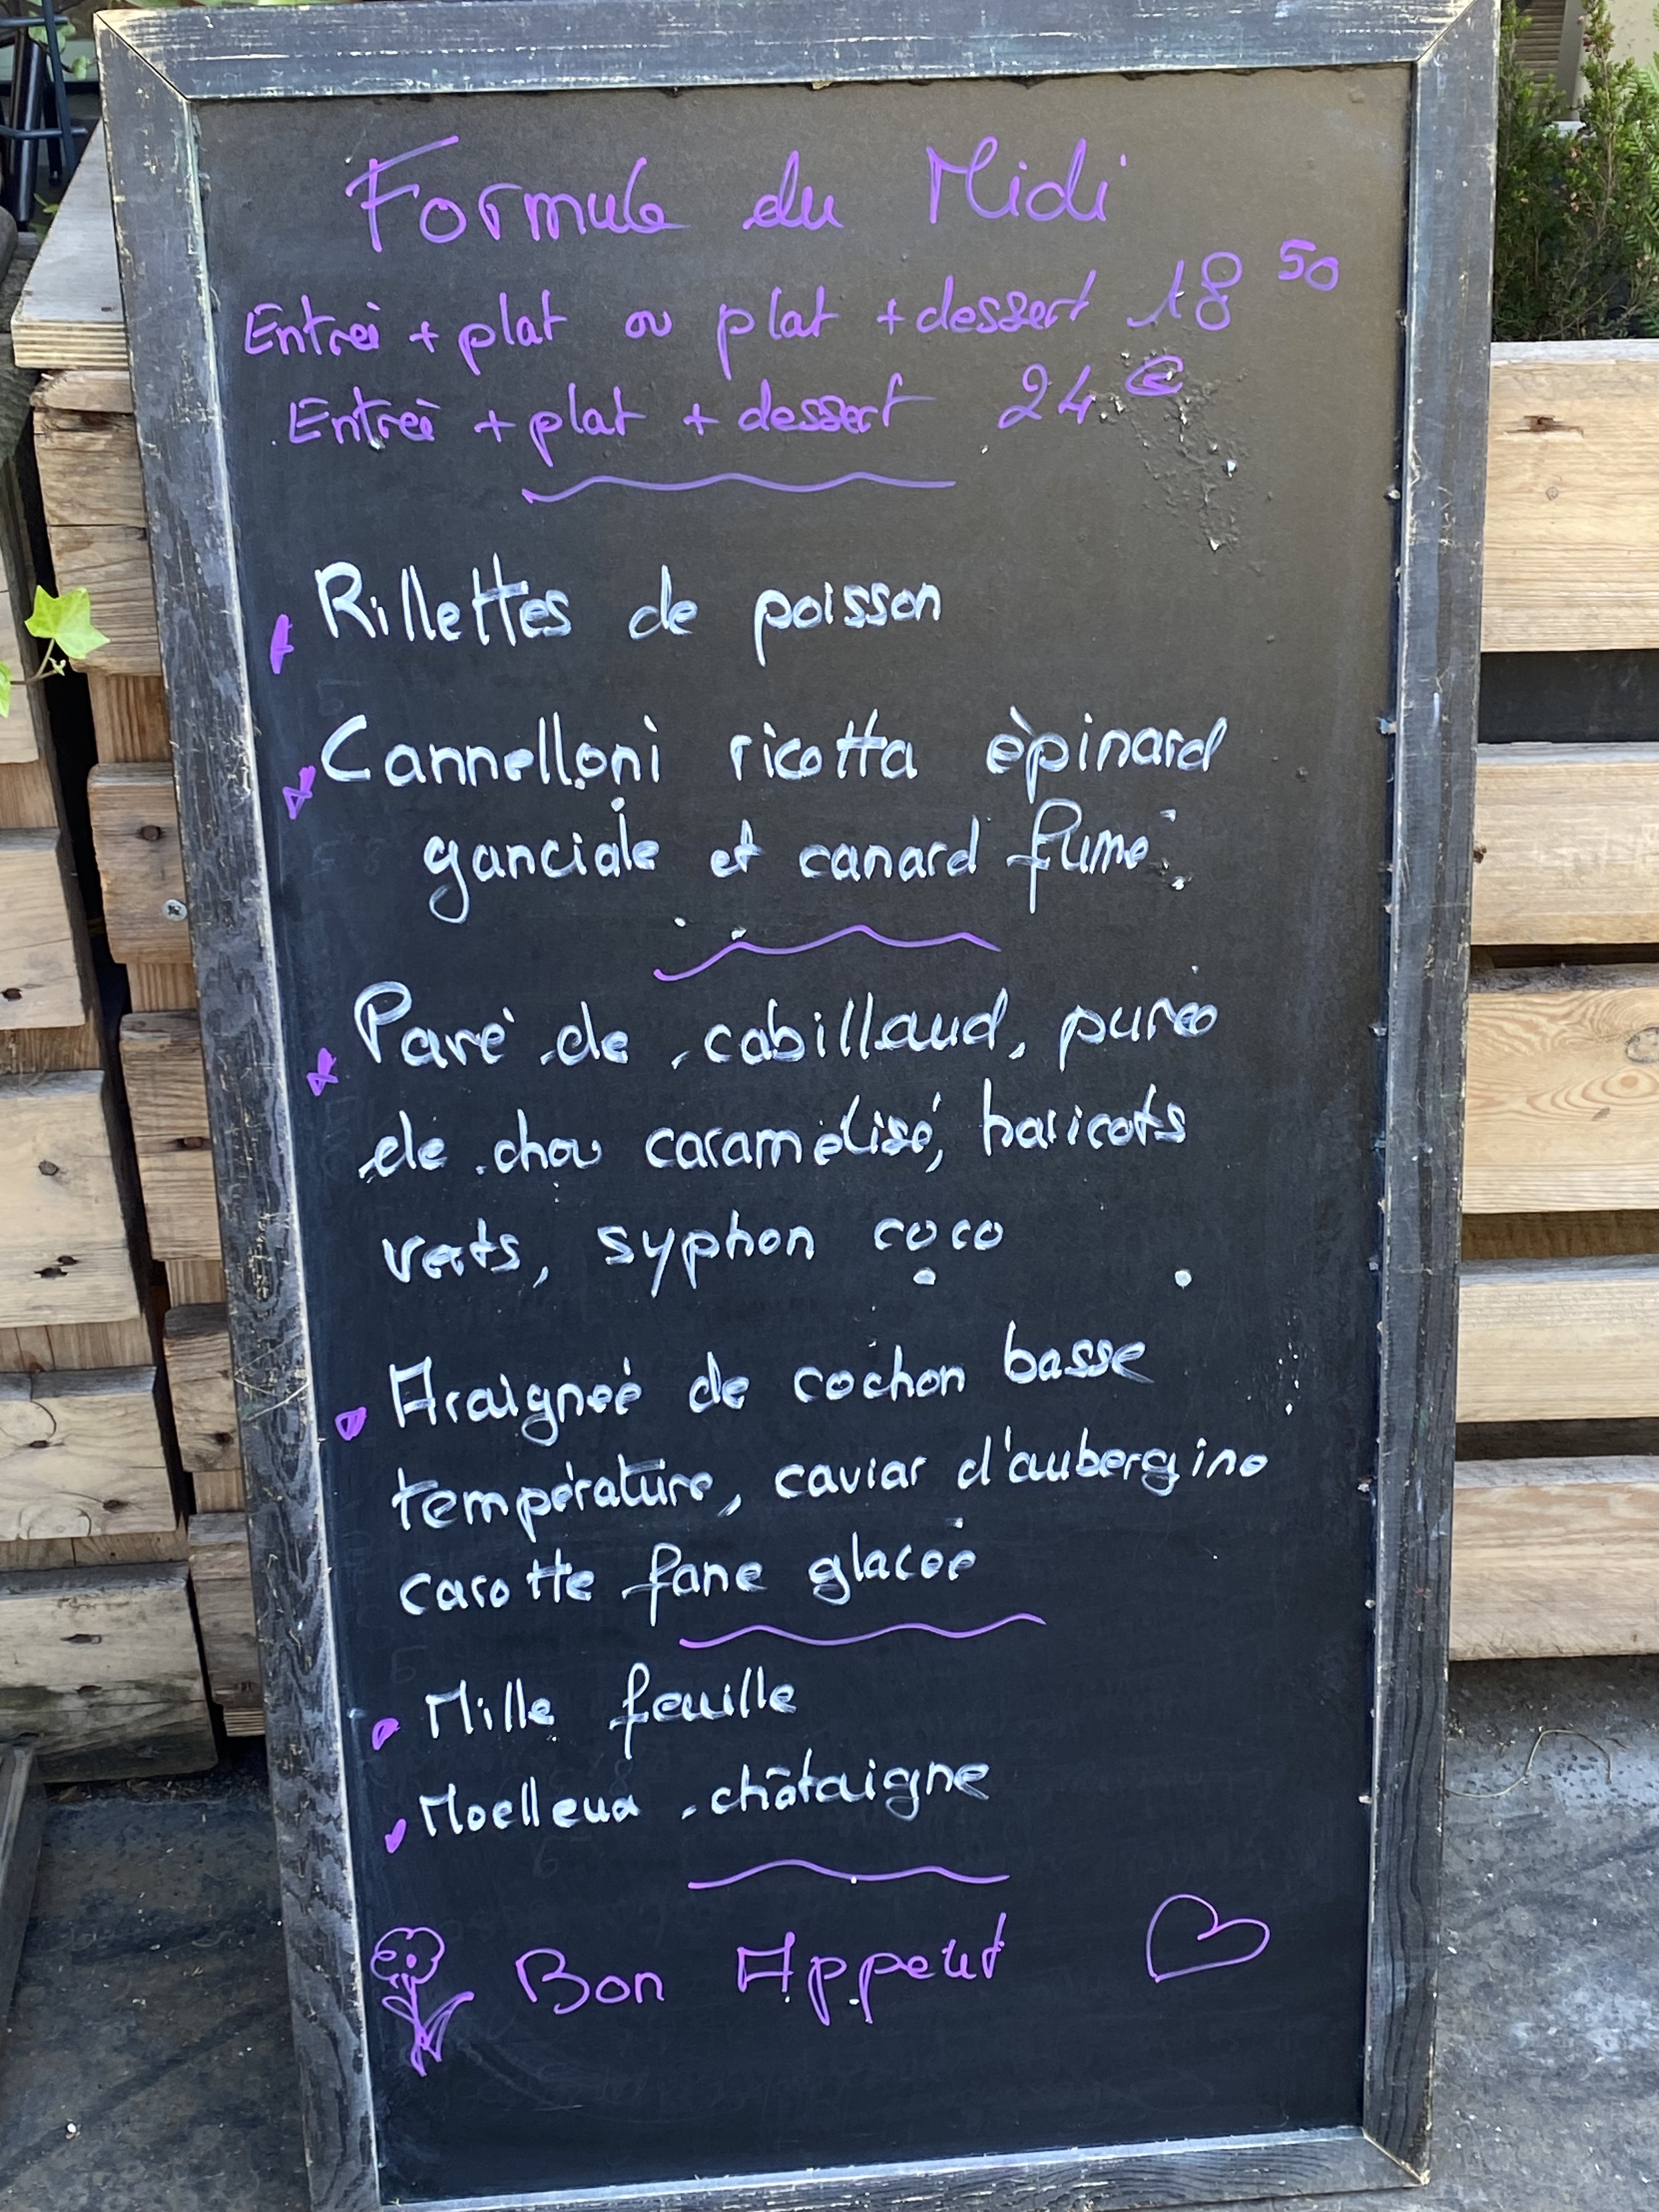 Formule du Midi
Entrée + plat ou plat + dessert 18 50
Entrée + plat + dessert 24 €
Rillettes de poisson
Cannelloni ricotta épinard
ganciale et canard fumé
Pavé de cabillaud, purée
de chou caramélisé, haricots
verts, syphon coco
Araignée de cochon basse
température, caviar d'aubergine
carotte fane glacée
Mille feuille
Moelleux châtaigne
Bon Appetit